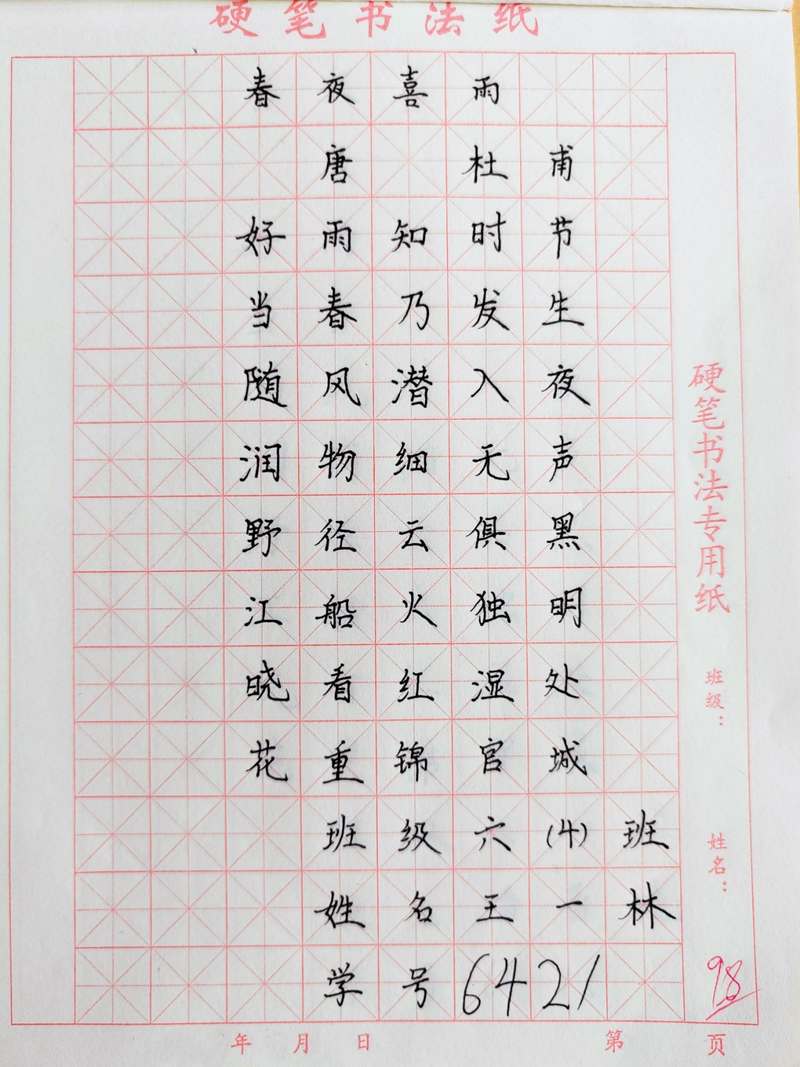 硬笔书法纸
春夜喜雨
唐 杜甫
好雨知时节
当春乃发生
随风潜入夜
润物细无声
野径云俱黑
江船火独明
晓看红湿处
花重锦官城
班级六(4)班
姓名王一林
学号6421
硬笔书法专用纸
班级：
姓名：
98
年 月 日
第 页